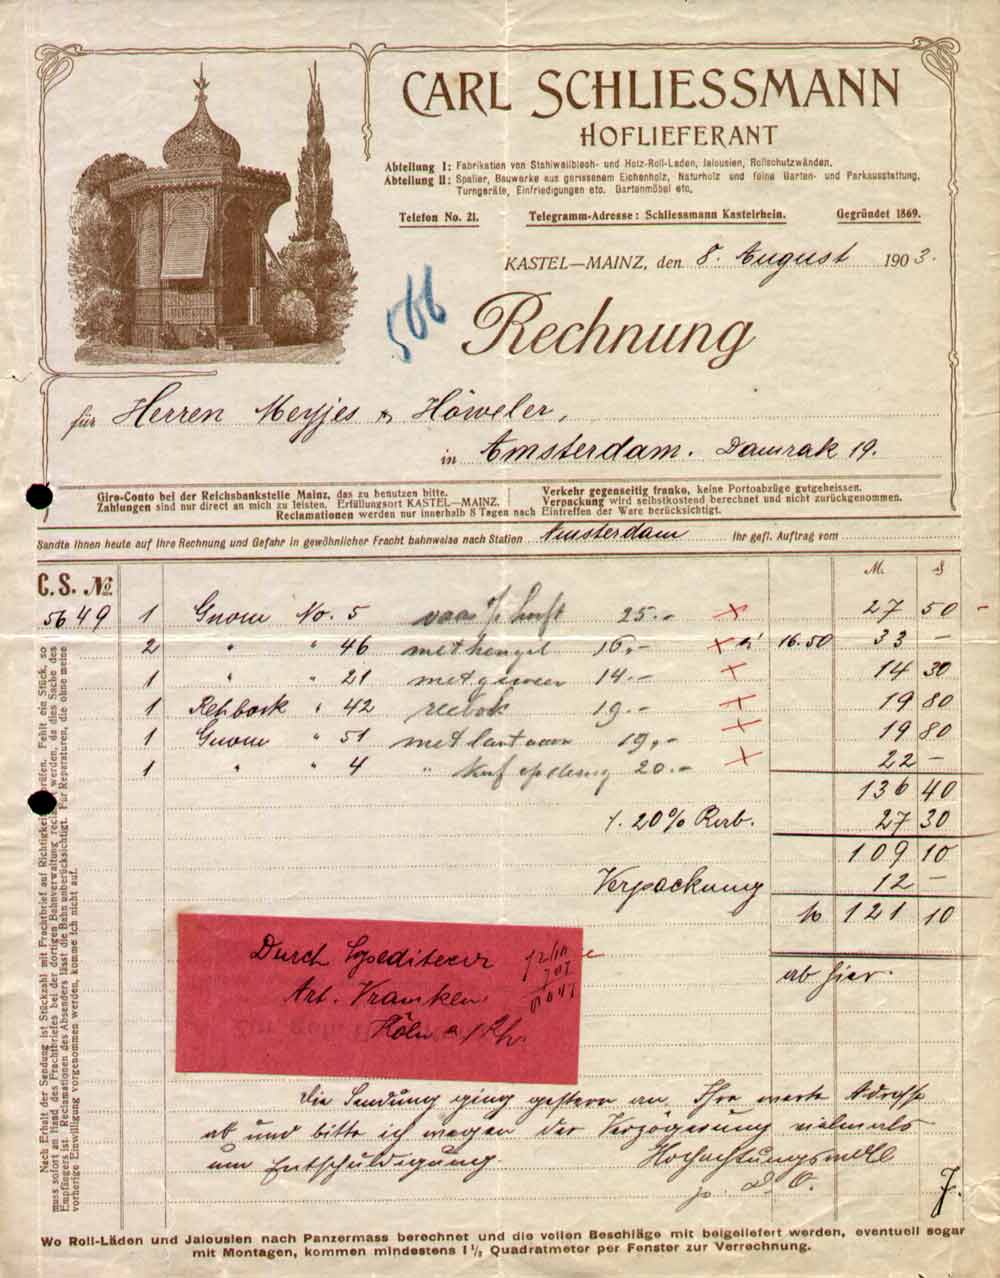 CARL SCHLIESSMANN
HOFLIEFERANT
Abteilung I: Fabrikation von Stahlwellblech- und Holz-Roll-Laden, Jalousien, Rollschutzwänden.
Abteilung II: Spalier, Bauwerke aus gerissenem Eichenholz, Naturholz und feine Garten- und Parkausstattung,
Turngeräte, Einfriedigungen etc. Gartenmöbel etc.
Telefon No. 21. Telegramm-Adresse: Schliessmann Kastelrhein. Gegründet 1869.
KASTEL—MAINZ, den 8. August 1903.
566
Rechnung
für Herren Meyjes & Höweler,
in Amsterdam. Damrak 19.
Giro-Conto bei der Reichsbankstelle Mainz, das zu benutzen bitte.
Zahlungen sind nur direct an mich zu leisten. Erfüllungsort KASTEL—MAINZ.
Verkehr gegenseitig franko, keine Portoabzüge gutgeheissen.
Verpackung wird selbstkostend berechnet und nicht zurückgenommen.
Reclamationen werden nur innerhalb 8 Tagen nach Eintreffen der Ware berücksichtigt.
Sandte Ihnen heute auf Ihre Rechnung und Gefahr in gewöhnlicher Fracht bahnweise nach Station Amsterdam Ihr gefl. Auftrag vom
C. S. No M. ₰
5649 1 Gnom No. 5 25.- 27 50
2 " " 46 met hengel 16.- à 16.50 33 –
1 " " 21 met geweer 14.- 14 30
1 Rehbock " 42 reebok 19.- 19 80
1 Gnom " 51 met lantaarn 19.- 19 80
1 " " 4 " 20.- 22 –
136 40
./. 20% Rab. 27 30
109 10
Verpackung 12 –
M 121 10
ab hier.
Durch Spediteur
Art. Vrancken
Köln a/Rh.
Die Sendung ging gestern an Ihre werte Adresse
ab und bitte ich wegen der Verzögerung vielmals
um Entschuldigung.
Hochachtungsvoll
Nach Erhalt der Sendung ist Stückzahl mit Frachtbrief auf Richtigkeit prüfen. Fehlt ein Stück, so
muss sofort an Hand des Frachtbriefes bei der dortigen Bahnverwaltung werden, da dies Sache des
Empfängers ist. Reclamationen des Absenders lässt die Bahn unberücksichtigt. Für Reparaturen, die ohne meine
vorherige Einwilligung vorgenommen werden, komme ich nicht auf.
Wo Roll-Läden und Jalousien nach Panzermass berechnet und die vollen Beschläge mit beigeliefert werden, eventuell sogar
mit Montagen, kommen mindestens 1½ Quadratmeter per Fenster zur Verrechnung.